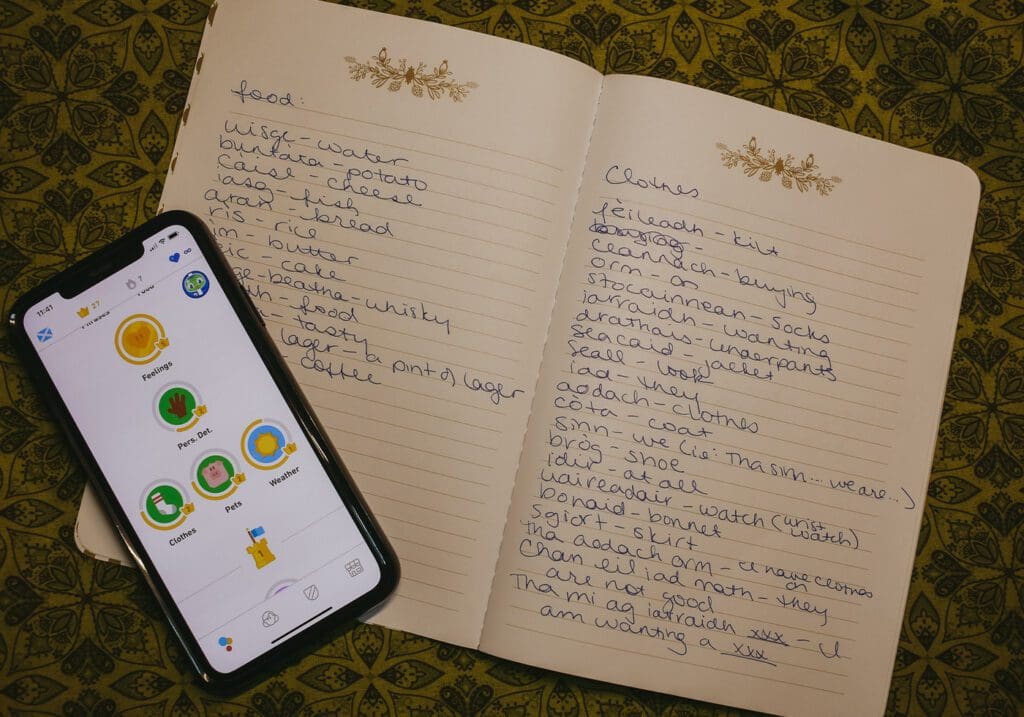 food:
uisge - water
buntata - potato
càise - cheese
iasg - fish
aran - bread
ris - rice
im - butter
ic - cake
ge-beatha - whisky
- food
- tasty
lager - a pint of lager
- coffee
Clothes
fèileadh - kilt
ceannach - buying
orm - on
stocainnean - socks
iarraidh - wanting
drathais - underpants
seacaid - jacket
seall - look
iad - they
aodach - clothes
còta - coat
sinn - we (ie: Tha sinn... we are...)
bròg - shoe
idir - at all
uaireadair - watch (wrist watch)
bonaid - bonnet
sgiort - skirt
tha aodach orm - I have clothes on
Chan eil iad math - they
are not good
Tha mi ag iarraidh xxx - I
am wanting a xxx
11:41
27
7
Feelings
Pers. Det.
Weather
Pets
Clothes
1